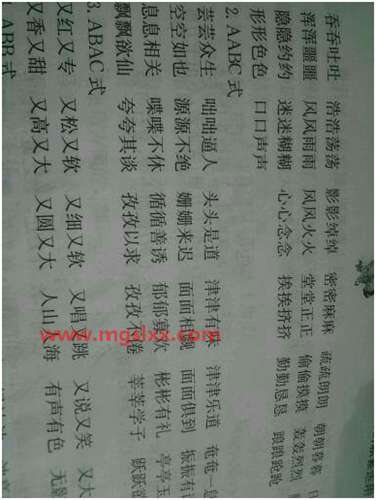 吞吞吐吐 浩浩荡荡 影影绰绰 密密麻麻 疏疏朗朗 朝朝暮暮
浑浑噩噩 风风雨雨 风风火火 堂堂正正 偷偷摸摸 轰轰烈烈
隐隐约约 迷迷糊糊 心心念念 挨挨挤挤 勤勤恳恳 踉踉跄跄
形形色色 口口声声
2. AABC 式
芸芸众生 咄咄逼人 头头是道 津津有味 津津乐道 奄奄一
空空如也 源源不绝 姗姗来迟 面面相觑 面面俱到 振振有
息息相关 喋喋不休 循循善诱 郁郁寡欢 彬彬有礼 亭亭玉
飘飘欲仙 夸夸其谈 孜孜以求 孜孜不倦 莘莘学子 跃跃欲
3. ABAC 式
又红又专 又松又软 又细又软 又唱又跳 又说又笑 又大
又香又甜 又高又大 又圆又大 人山人海 有声有色 无影
ABB 式
www.mgdxx.com